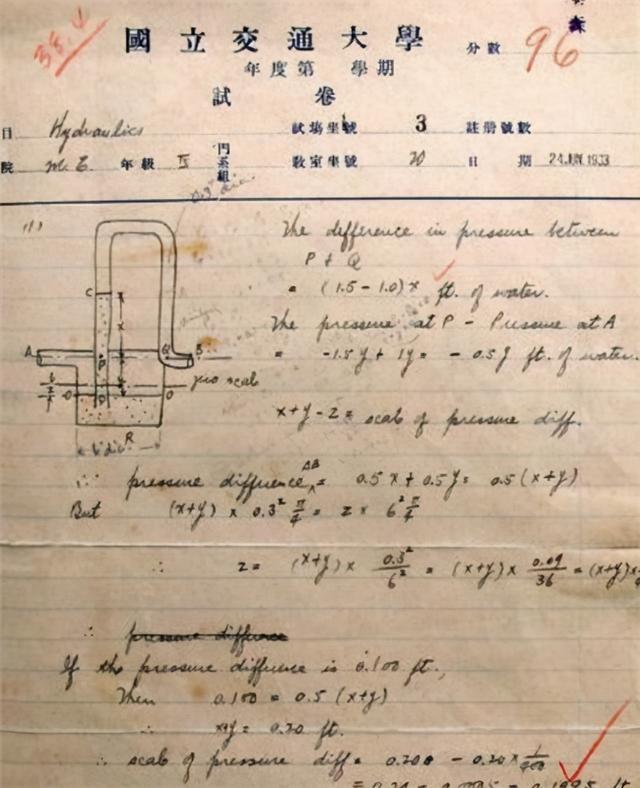 38.4
國立交通大學
分數 96
年度第 學期
試卷
目 Hydraulics 試場坐號 3 註册號數
院 M.E. 年級 IV 門系組 教室坐號 20 日期 24 JUN 1933
0.3" dia.
(1)
The difference in pressure between
P & Q
= (1.5 - 1.0) x ft. of water.
The pressure at P - Pressure at A
= -1.5y + 1y = -0.5y ft. of water.
C
A P Q B
zero scale
O O
R
6" dia.
x+y-z = scale of pressure diff.
∴ pressure difference AB = 0.5x + 0.5y = 0.5 (x+y)
But (x+y) x 0.3² π/4 = z x 6² π/4
∴ z = (x+y) x 0.3²/6² = (x+y) x 0.09/36 = (x+y) x
∴ pressure difference
If the pressure difference is 0.100 ft.,
Then 0.100 = 0.5 (x+y)
∴ x+y = 0.20 ft.
∴ scale of pressure diff = 0.200 - 0.20 x 1/400
= 0.20 - 0.0005 = 0.1995 ft